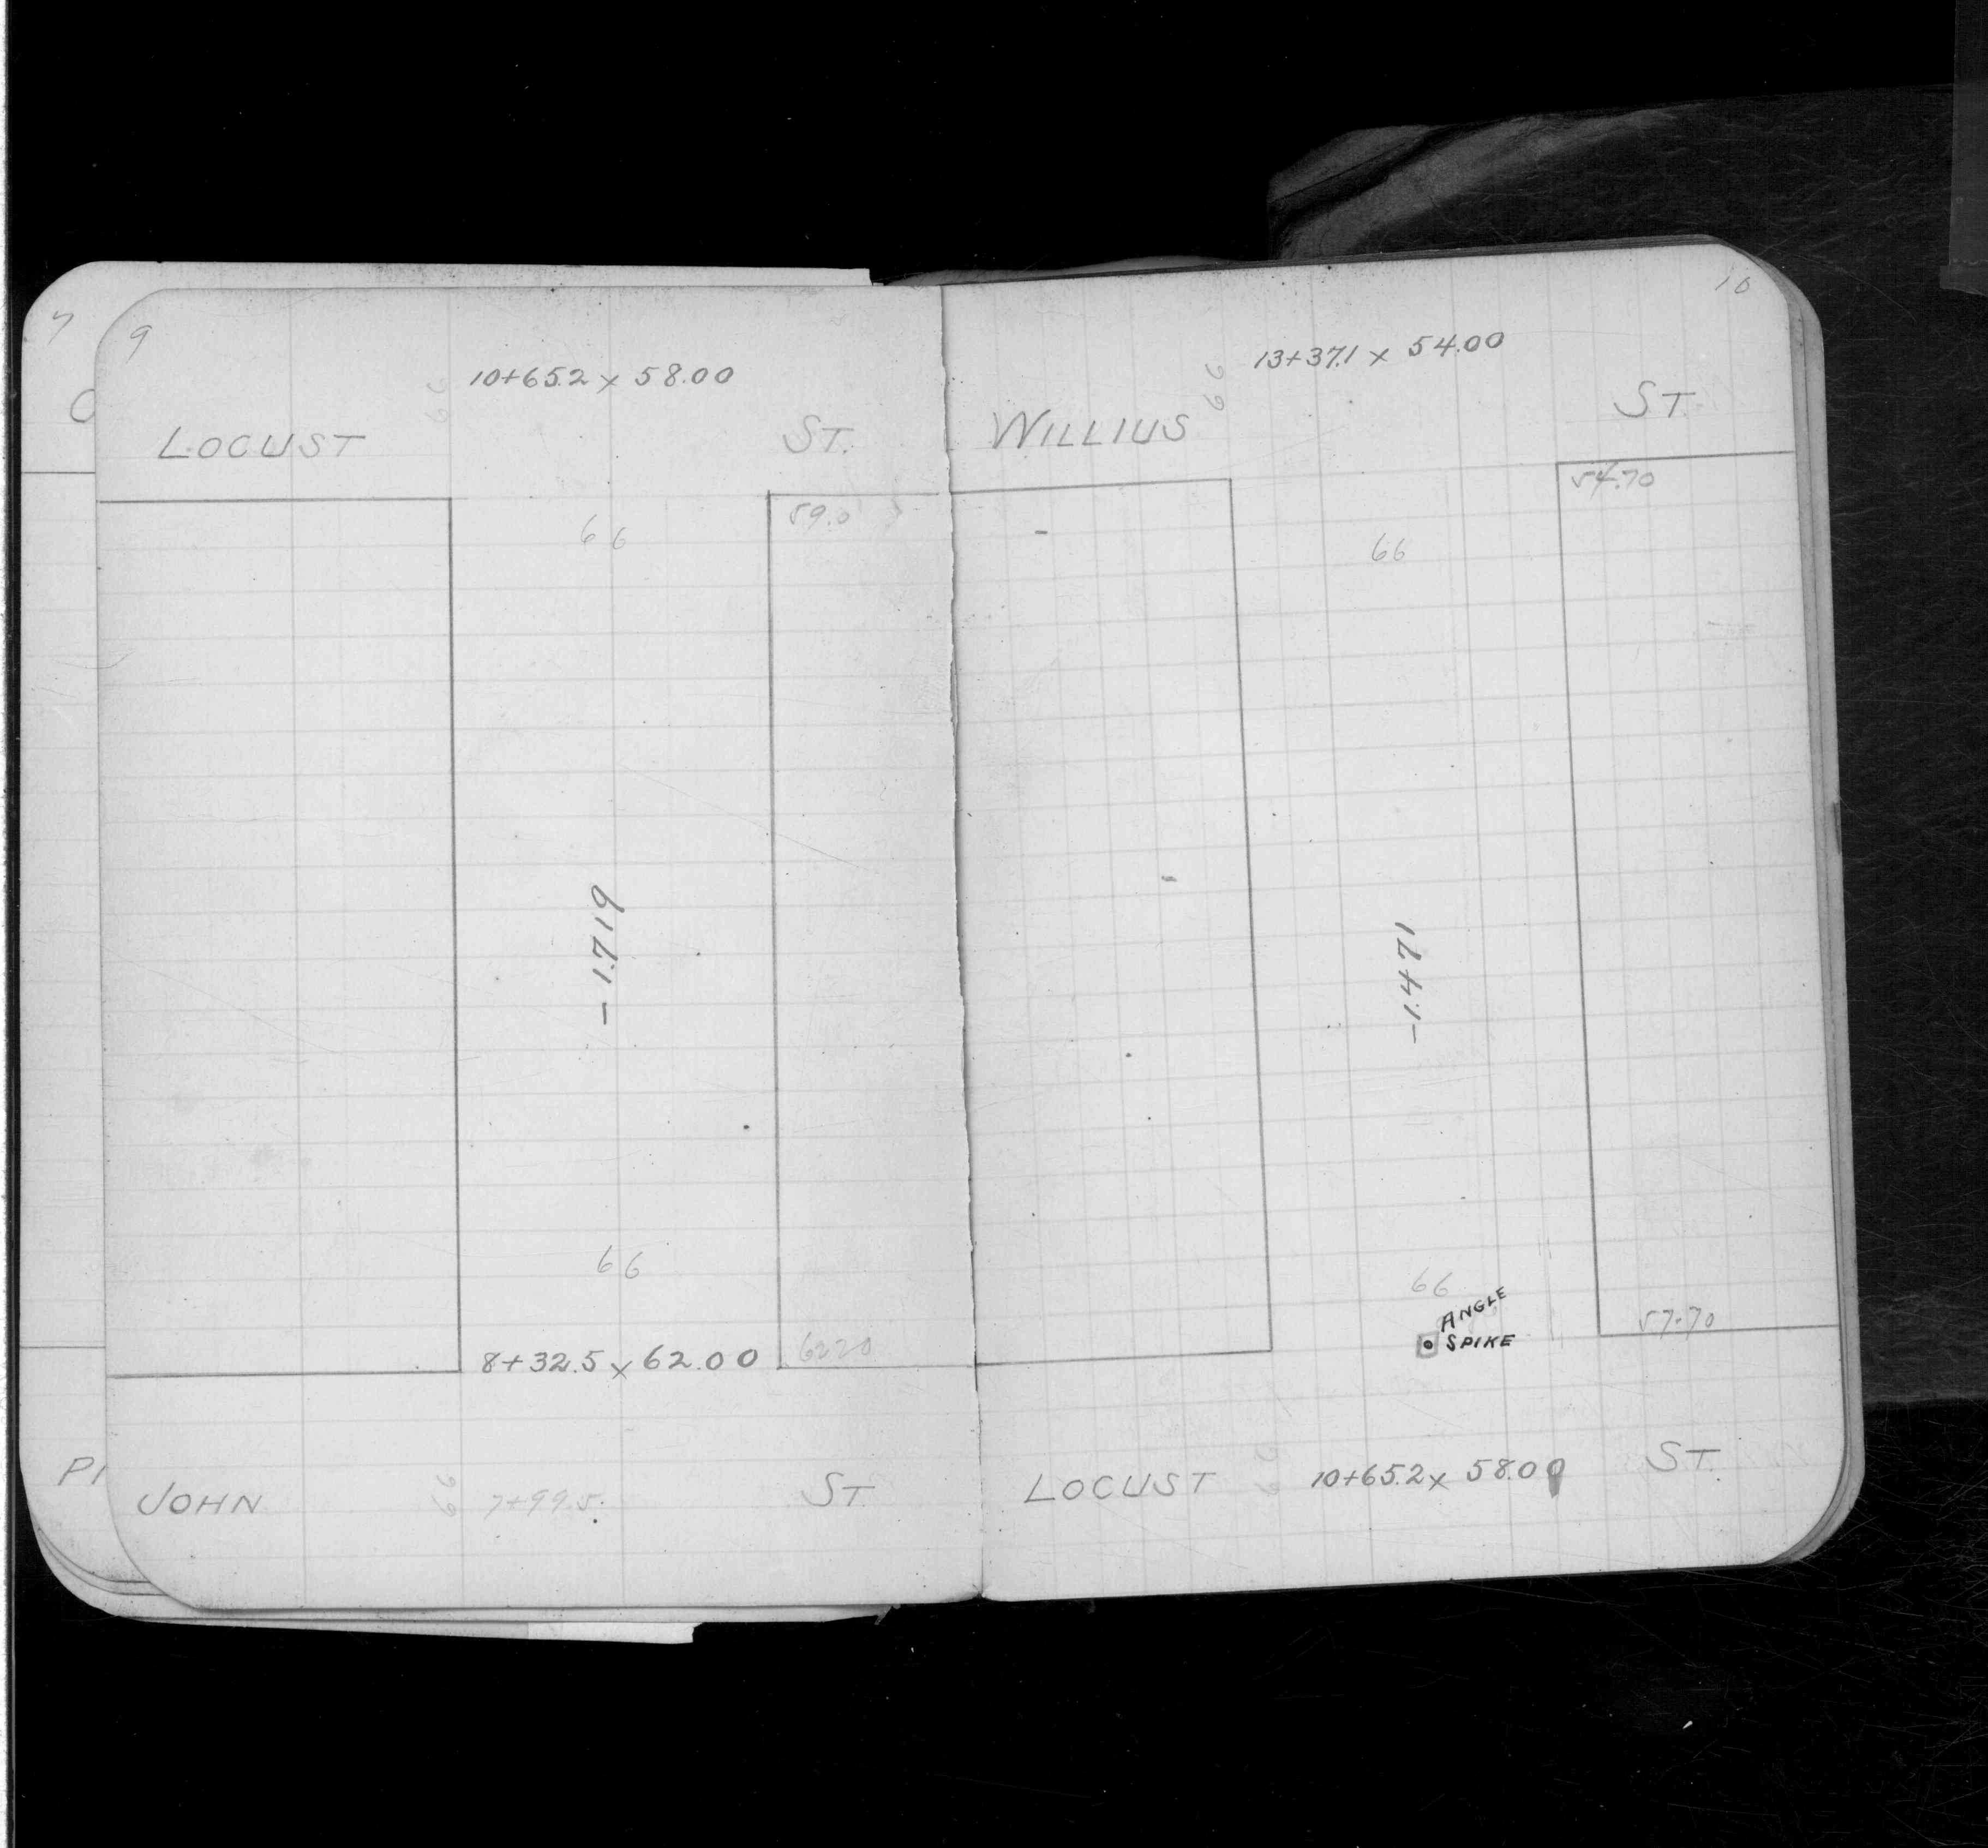 7
9
10+65.2 x 58.00
66
LOCUST ST.
66
59.0
-1.719
66
8+32.5 x 62.00
62.20
JOHN 66 7+99.5 ST.
10
13+37.1 x 54.00
66
WILLIUS ST.
54.70
66
-1.471
66
ANGLE
SPIKE
57.70
LOCUST 66 10+65.2 x 58.00 ST.